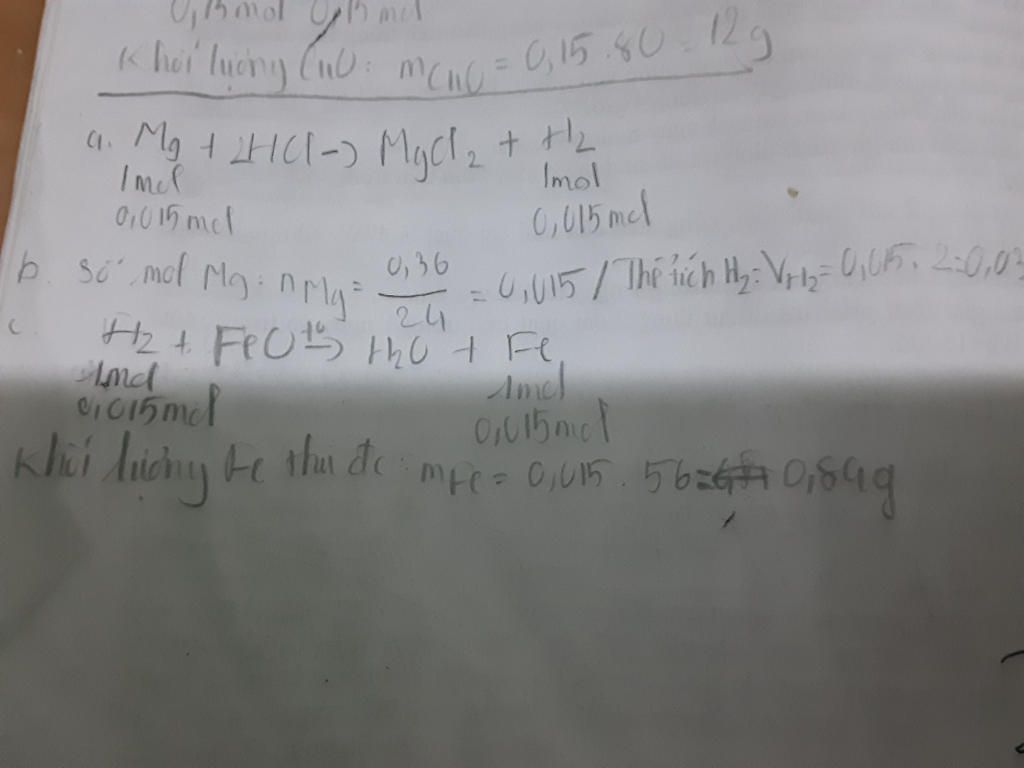 0,15mol 0,15 mol
Khối lượng CuO: mCuO = 0,15.80 = 12g
a. Mg + 2HCl -> MgCl2 + H2
1mol 1mol
0,015mol 0,015mol
b. Số mol Mg: nMg = 0,36/24 = 0,015 / Thể tích H2: VH2 = 0,015.2=0,03
c. H2 + FeO t° -> H2O + Fe
1mol 1mol
0,015mol 0,015mol
Khối lượng Fe thu đc: mFe = 0,015.56= 0,84g